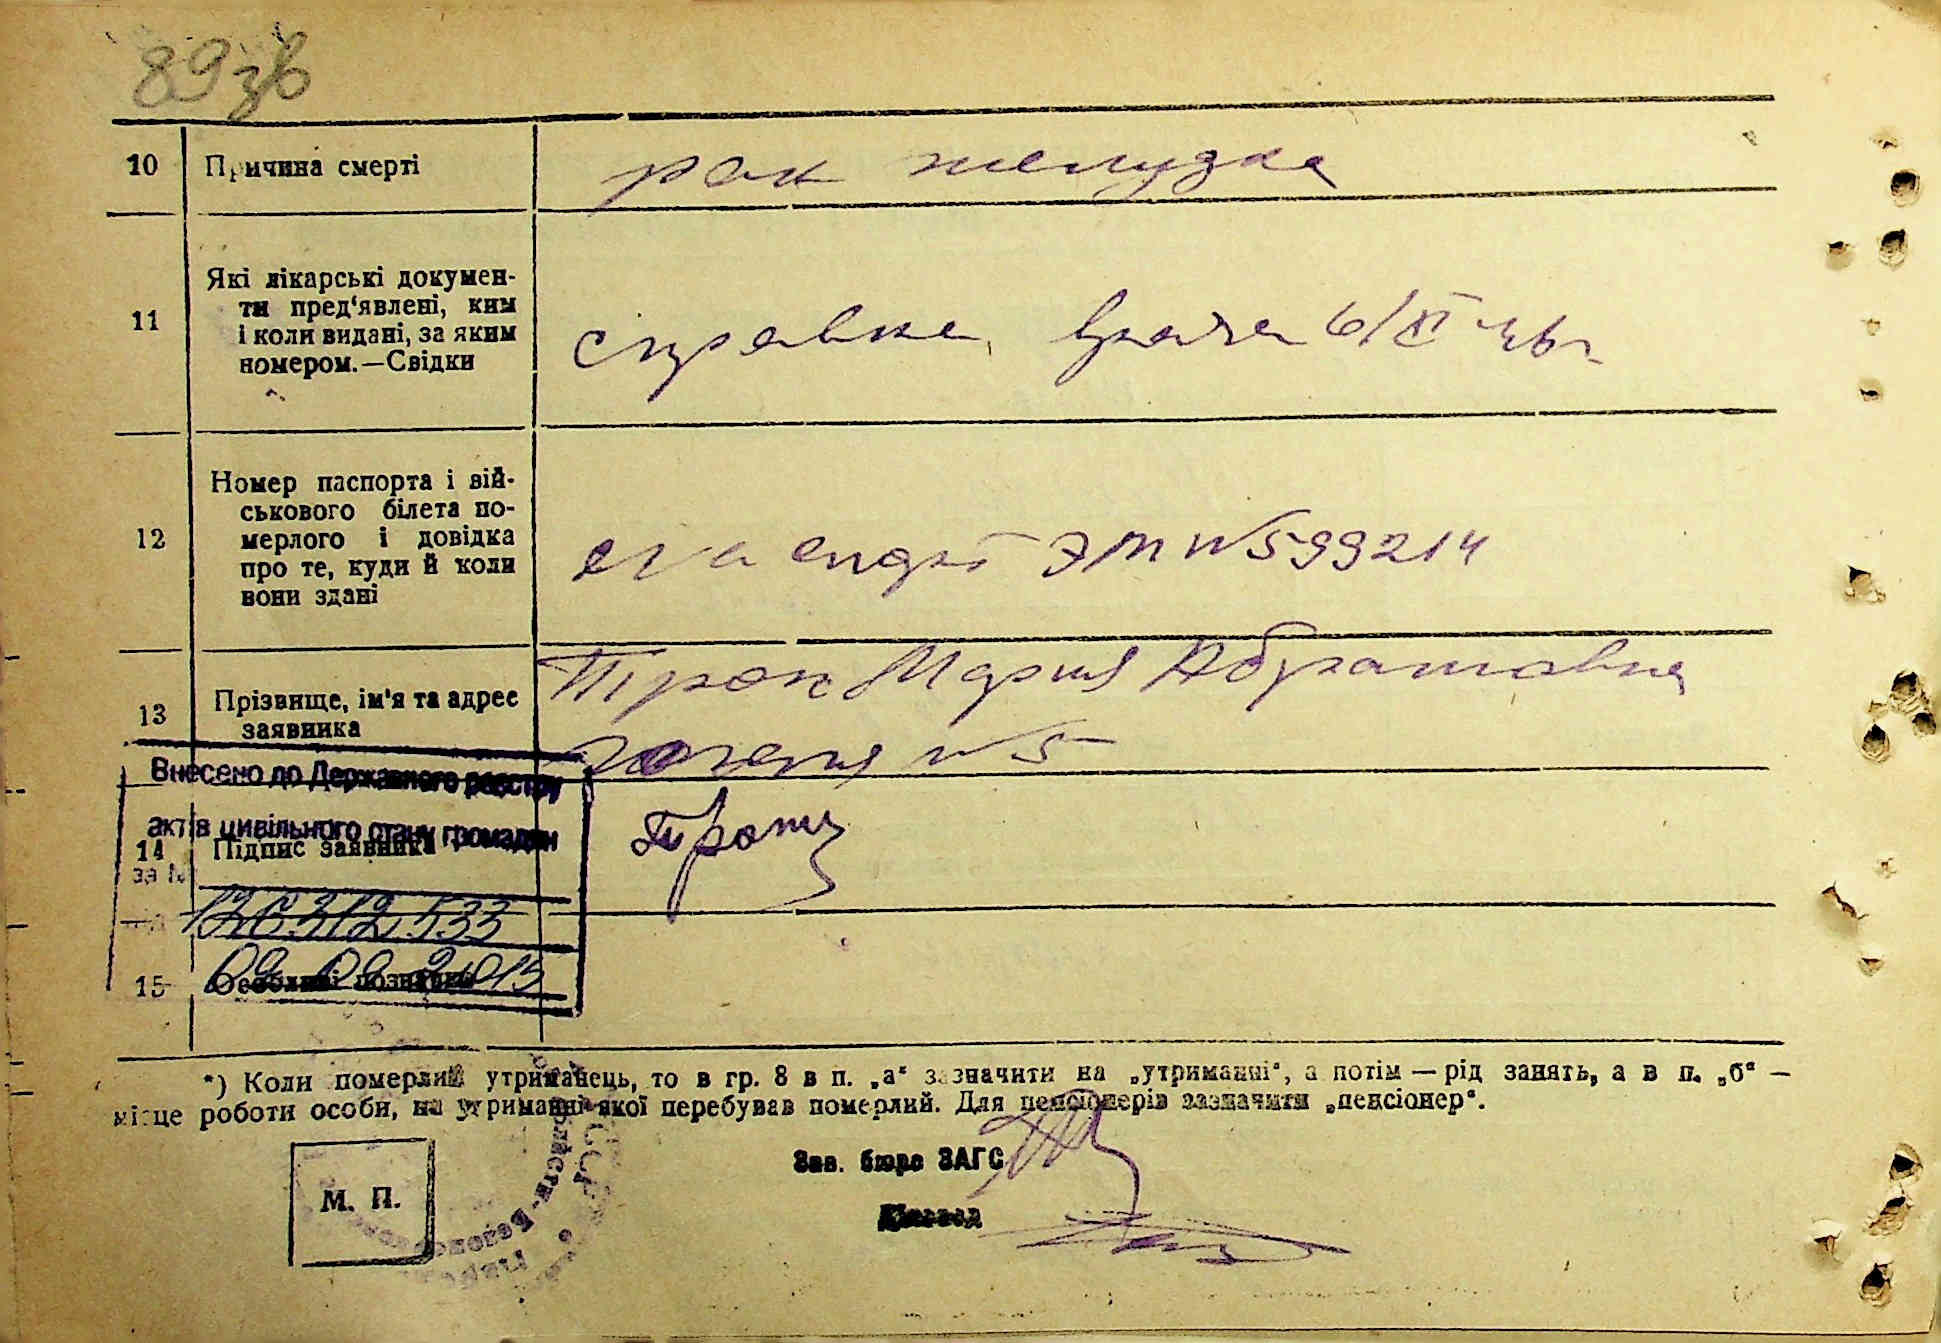 89зв
10 Причина смерті рак желудка
11 Які лікарські докумен-
ти пред'явлені, ким
і коли видані, за яким
номером.—Свідки
справка врача 6/XI-46г
12 Номер паспорта і вій-
ськового білета по-
мерлого і довідка
про те, куди й коли
вони здані
ЭМ №599214
13 Прізвище, ім'я та адрес
заявника
Мария Абрамовна
Гоголя №5
Внесено до Державного реєстру
актів цивільного стану громадян
14 Підпис заявника
за №
312533
2015
15 Особливі позначки
*) Коли померлий утриманець, то в гр. 8 в п. „а“ зазначити на „утриманні“, а потім — рід занять, а в п. „б“ —
місце роботи особи, на утриманні якої перебував померлий. Для пенсіонерів зазначити „пенсіонер“.
М. П.
Зав. бюро ЗАГС
Діловод